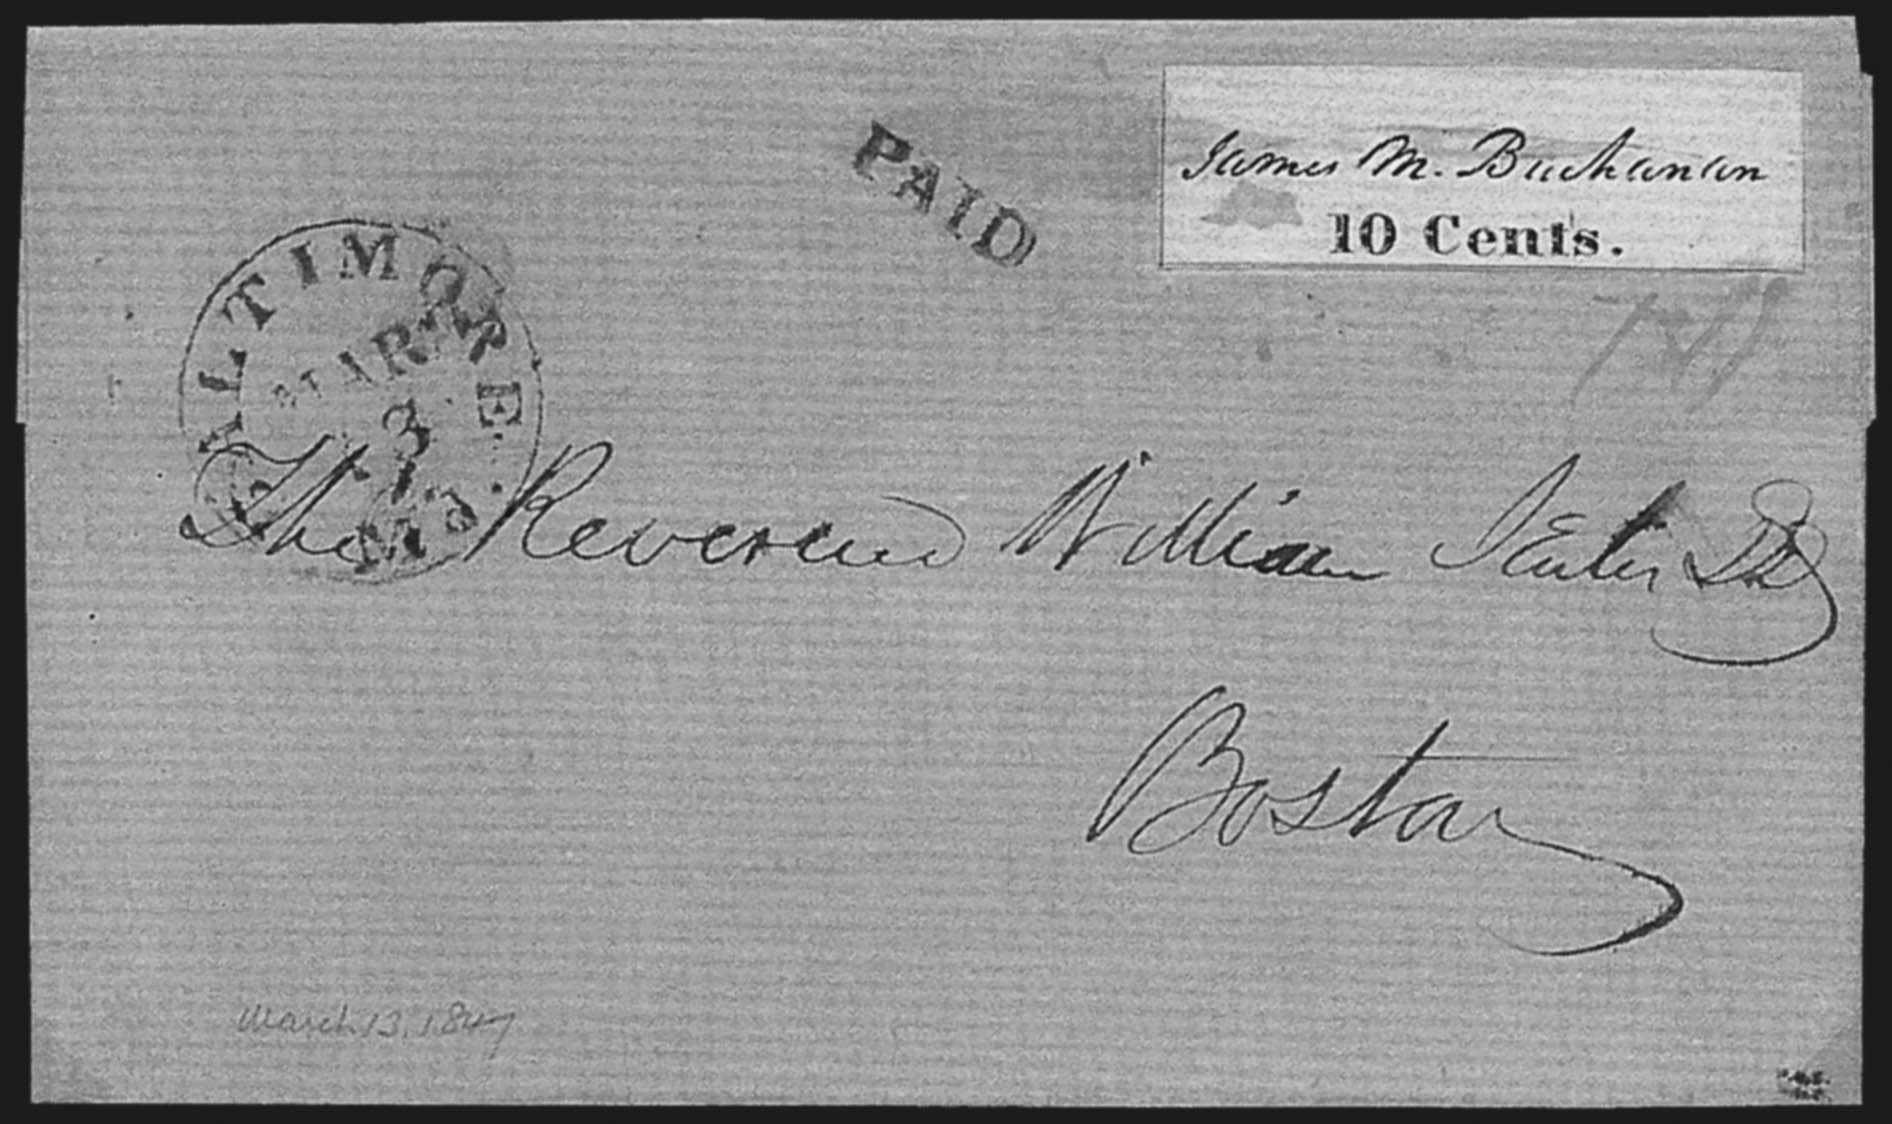 PAID
James M. Buchanan
10 Cents.
BALTIMORE Md.
MAR
13
The Reverend William Jenks DD
Boston
March 13, 1847